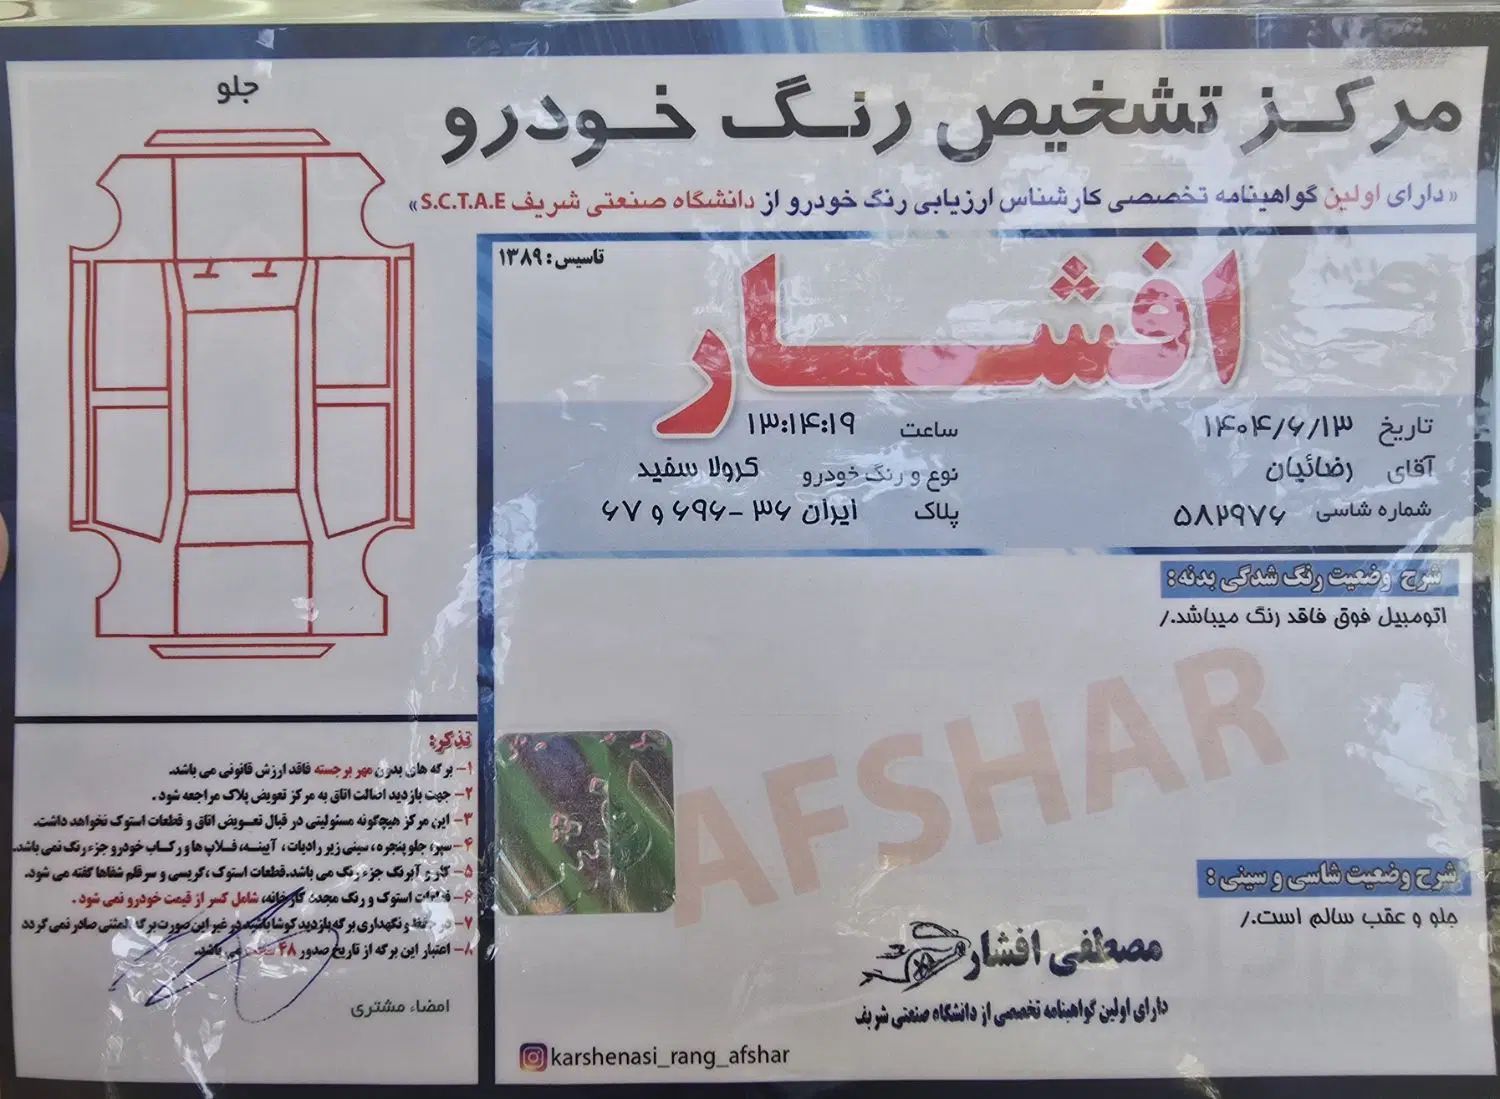 جلو
مرکز تشخیص رنگ خودرو
« دارای اولین گواهینامه تخصصی کارشناس ارزیابی رنگ خودرو از دانشگاه صنعتی شریف S.C.T.A.E»
تاسیس: ۱۳۸۹
افشار
تاریخ ۱۴۰۴/۶/۱۳ ساعت ۱۳:۱۴:۱۹
آقای رضائیان نوع و رنگ خودرو کرولا سفید
شماره شاسی ۵۸۲۹۷۶ پلاک ایران ۳۶ -۶۹۶ و ۶۷
شرح وضعیت رنگ شدگی بدنه:
اتومبیل فوق فاقد رنگ میباشد./
AFSHAR
شرح وضعیت شاسی و سینی:
جلو و عقب سالم است./
مصطفی افشار
دارای اولین گواهینامه تخصصی از دانشگاه صنعتی شریف
karshenasi_rang_afshar
تذکر:
۱- برگه های بدون مهر برجسته فاقد ارزش قانونی می باشد.
۲- جهت بازدید اصالت اتاق به مرکز تعویض پلاک مراجعه شود.
۳- این مرکز هیچگونه مسئولیتی در قبال تعویض اتاق و قطعات استوک نخواهد داشت.
۴- سپر، جلو پنجره، سینی زیر رادیات، آیینه، فلاپ ها و رکاب خودرو جزء رنگ نمی باشد.
۵- کاور آبرنگ جزء رنگ می باشد. قطعات استوک، گریسی و سرقلم شفاها گفته می شود.
۶- قطعات استوک و رنگ مجدد کارخانه، شامل کسر از قیمت خودرو نمی شود.
۷- در حفظ و نگهداری برگه بازدید کوشا باشید در غیر این صورت برگه المثنی صادر نمی گردد
۸- اعتبار این برگه از تاریخ صدور ۴۸ ساعت می باشد.
امضاء مشتری